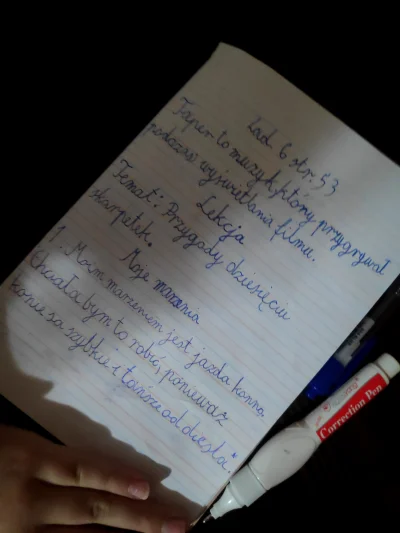 Zad. 6 str. 53
Taper to muzyk, który przygrywał
podczas wyświetlania filmu.
Lekcja
Temat: Przygody dziesięciu
skarpetek.
Moje marzenia
1. Moim marzeniem jest jazda konna
Chciała bym to robić, ponieważ
konie są szybkie i
Correction Pen